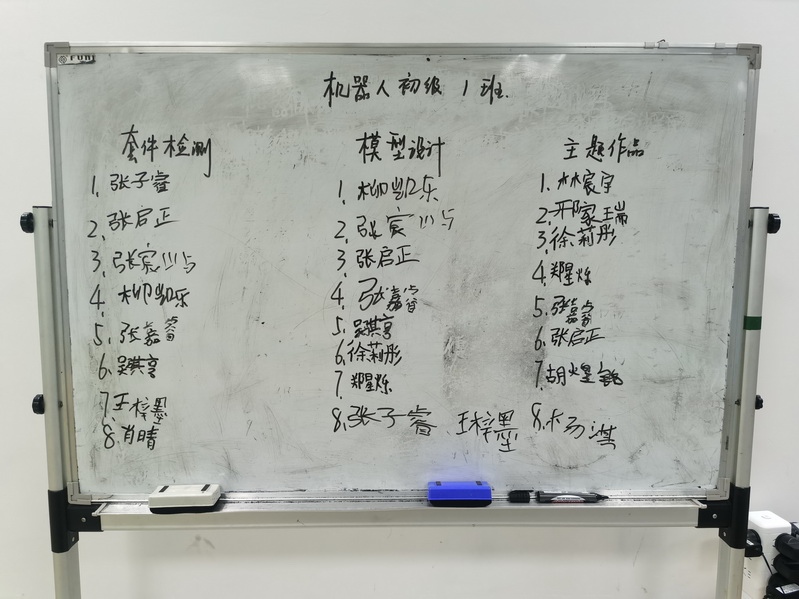 机器人初级 1 班.
套件检测
1. 张子睿
2. 张启正
3. 张宸
4. 柳凯乐
5. 张嘉睿
6. 吴祺亨
7. 王梓墨
8. 肖晴
模型设计
1. 柳凯乐
2. 张宸
3. 张启正
4. 张嘉睿
5. 吴祺亨
6. 徐莉彤
7. 郑星烁
8. 张子睿、王梓墨
主题作品
1. 林宸宇
2. 邢家瑞
3. 徐莉彤
4. 郑星烁
5. 张嘉睿
6. 张启正
7. 胡煜
8. 杨淇